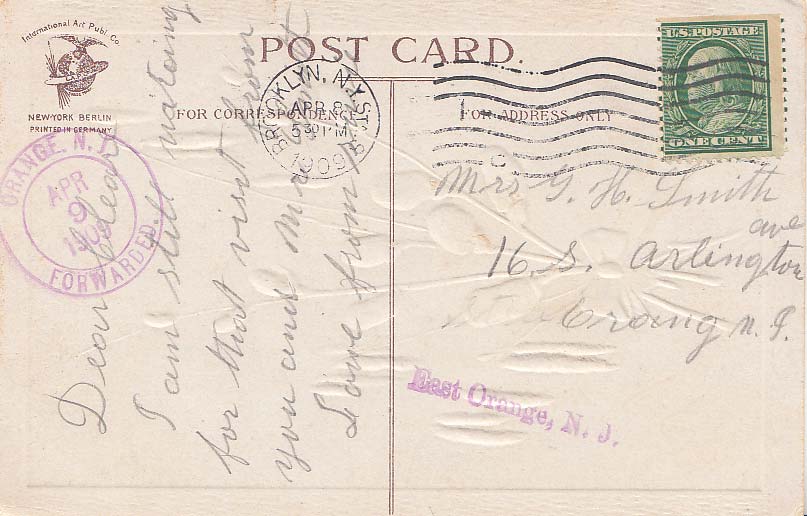 International Art Publ. Co.
NEW-YORK BERLIN
PRINTED IN GERMANY
POST CARD.
FOR CORRESPONDENCE
FOR ADDRESS ONLY
BROOKLYN, N.Y.
APR 8
530 PM
1909
U.S. POSTAGE
ONE CENT
ORANGE, N.J.
APR
9
FORWARDED.
Mrs G. H. Smith
16 S. Arlington ave
Orang N. J.
East Orange, N. J.
Dear
I am still
for that visit from
you and
Love from